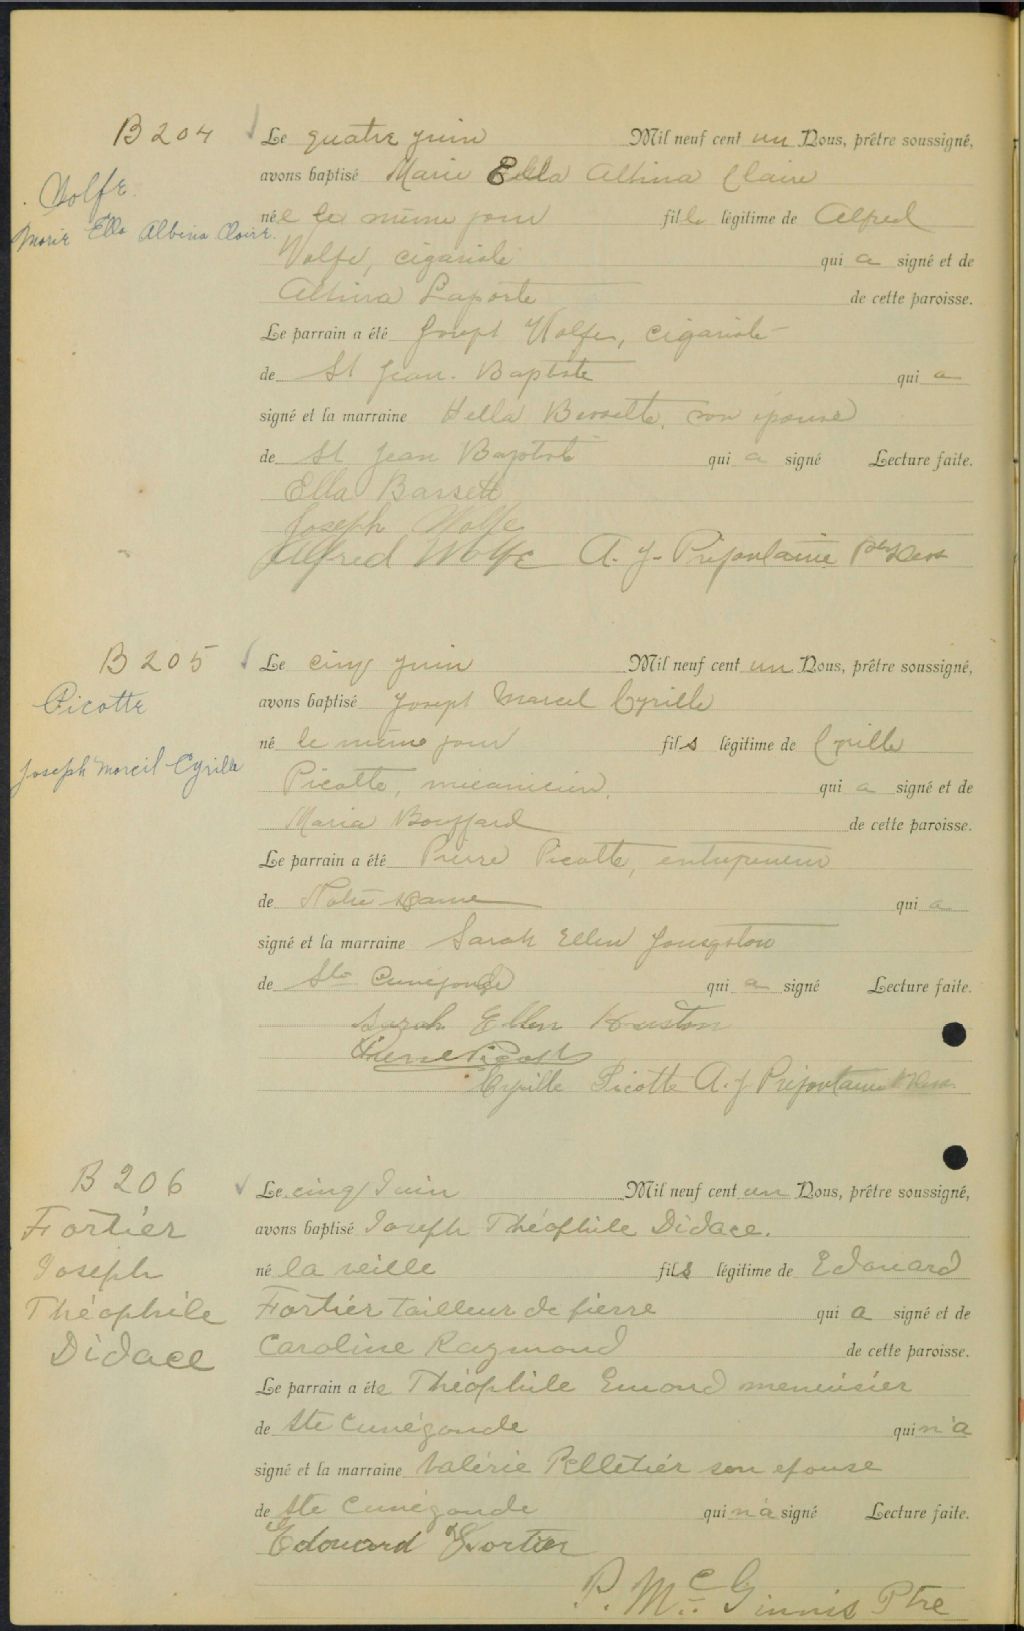 B 204
Wolfe.
Marie Ella Albina Claire.
Le quatre juin Mil neuf cent un Nous, prêtre soussigné,
avons baptisé Marie Ella Albina Claire
née le même jour fille légitime de Alfred
Wolfe, cigariste qui a signé et de
Albina Laporte de cette paroisse.
Le parrain a été Joseph Wolfe, cigariste
de St Jean-Baptiste qui a
signé et la marraine Hella Bessette, son épouse
de St Jean Baptiste qui a signé Lecture faite.
Ella Bassett
Joseph Wolfe
Alfred Wolfe A. J. Préfontaine ptre
B 205
Picotte
Joseph Marcil Cyrille
Le cinq juin Mil neuf cent un Nous, prêtre soussigné,
avons baptisé Joseph Marcel Cyrille
né le même jour fils légitime de Cyrille
Picotte, mécanicien, qui a signé et de
Maria Bouffard de cette paroisse.
Le parrain a été Pierre Picotte, entrepreneur
de Notre-Dame qui a
signé et la marraine Sarah Ellen
de Ste Cunégonde qui a signé Lecture faite.
Sarah Ellen Houston
Pierre Picotte
Cyrille Picotte A. J. Préfontaine
B 206
Fortier
Joseph
Théophile
Didace
Le cinq Juin Mil neuf cent un Nous, prêtre soussigné,
avons baptisé Joseph Théophile Didace.
né la veille fils légitime de Edouard
Fortier tailleur de pierre qui a signé et de
Caroline Raymond de cette paroisse.
Le parrain a été Théophile Emond menuisier
de Ste Cunégonde qui n'a
signé et la marraine Valérie Pelletier son epouse
de Ste Cunégonde qui n'a signé Lecture faite.
Edouard Fortier
P. McGinnis Ptre